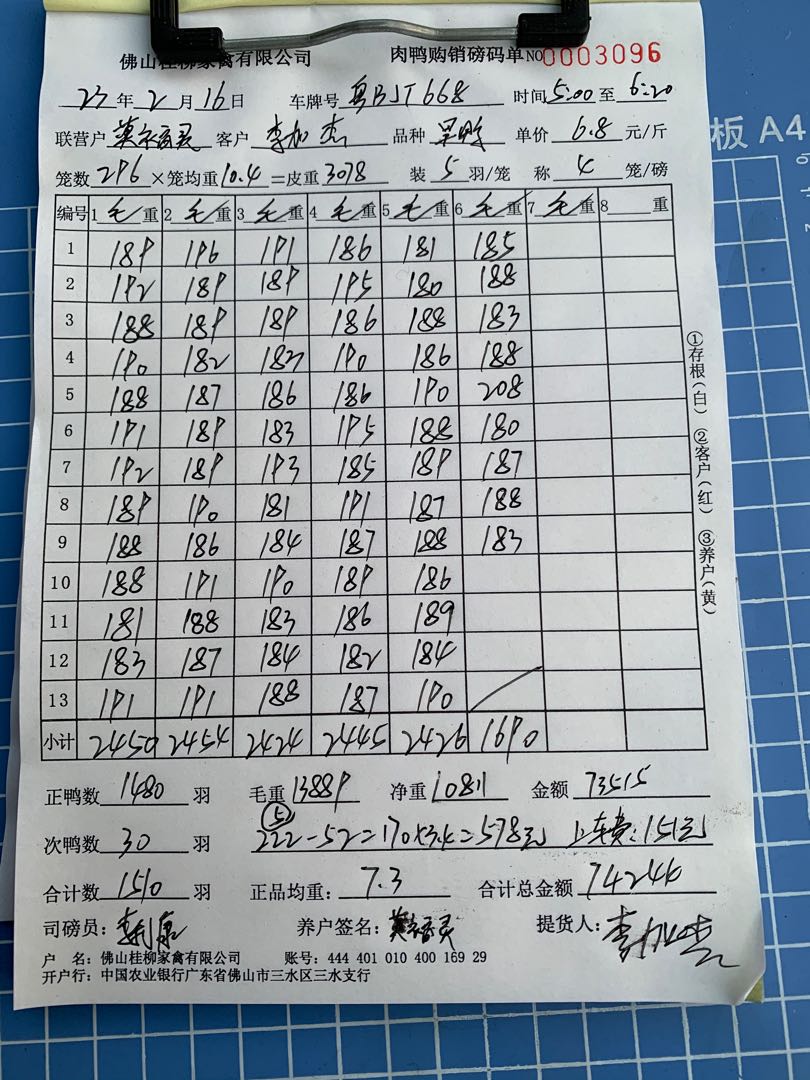 佛山桂柳家禽有限公司 肉鸭购销磅码单 NO 0003096
23年2月16日 车牌号 粤BJT668 时间 5:00 至 6:20
联营户 客户 李加杰 品种 单价 6.8 元/斤
笼数 296 ×笼均重 10.4 =皮重 3078 装 5 羽/笼 称 4 笼/磅
编号 1 毛重 2 毛重 3 毛重 4 毛重 5 毛重 6 毛重 7 毛重 8 重
1 189 196 191 186 181 185
2 192 189 189 195 180 188
3 188 189 189 186 188 183
4 190 182 183 190 186 188
5 188 187 186 186 190 208
6 191 189 183 195 188 180
7 192 189 193 185 189 187
8 189 190 181 191 187 188
9 188 186 184 187 188 183
10 188 191 190 189 186
11 181 188 183 186 189
12 183 187 184 182 184
13 191 191 188 187 190
小计 2450 2454 2424 2445 2426 1690
正鸭数 1480 羽 毛重 13889 净重 10811 金额 73515
次鸭数 30 羽 ⑤ 222-52=170×3.4=578元 上车费:151元
合计数 1510 羽 正品均重: 7.3 合计总金额 74244
司磅员: 养户签名: 提货人:
户 名: 佛山桂柳家禽有限公司 账号: 444 401 010 400 169 29
开户行: 中国农业银行广东省佛山市三水区三水支行
①存根(白) ②客户(红) ③养户(黄)
板 A4